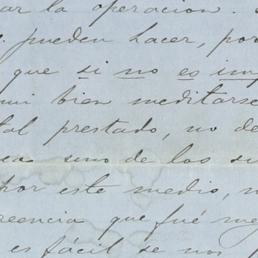 ar la operacion.
pueden hacer, por
que si no es im
mui bien meditarse
tal prestado, no de
ea uno de los su
por este medio,
reencia que fué me
es fácil se nos